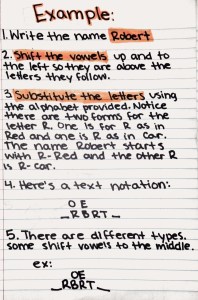 Example:
1. Write the name Robert
2. Shift the vowels up and to
the left so they are above the
letters they follow.
3 Substitute the letters using
the alphabet provided. Notice
there are two forms for the
letter R. One is for R as in
Red and one is R as in car.
The name Robert starts
with R-Red and the other R
is R-car.
4. Here's a text notation:
O E
_RBRT_
5. There are different types.
some shift vowels to the middle.
ex:
OE
_RBRT_